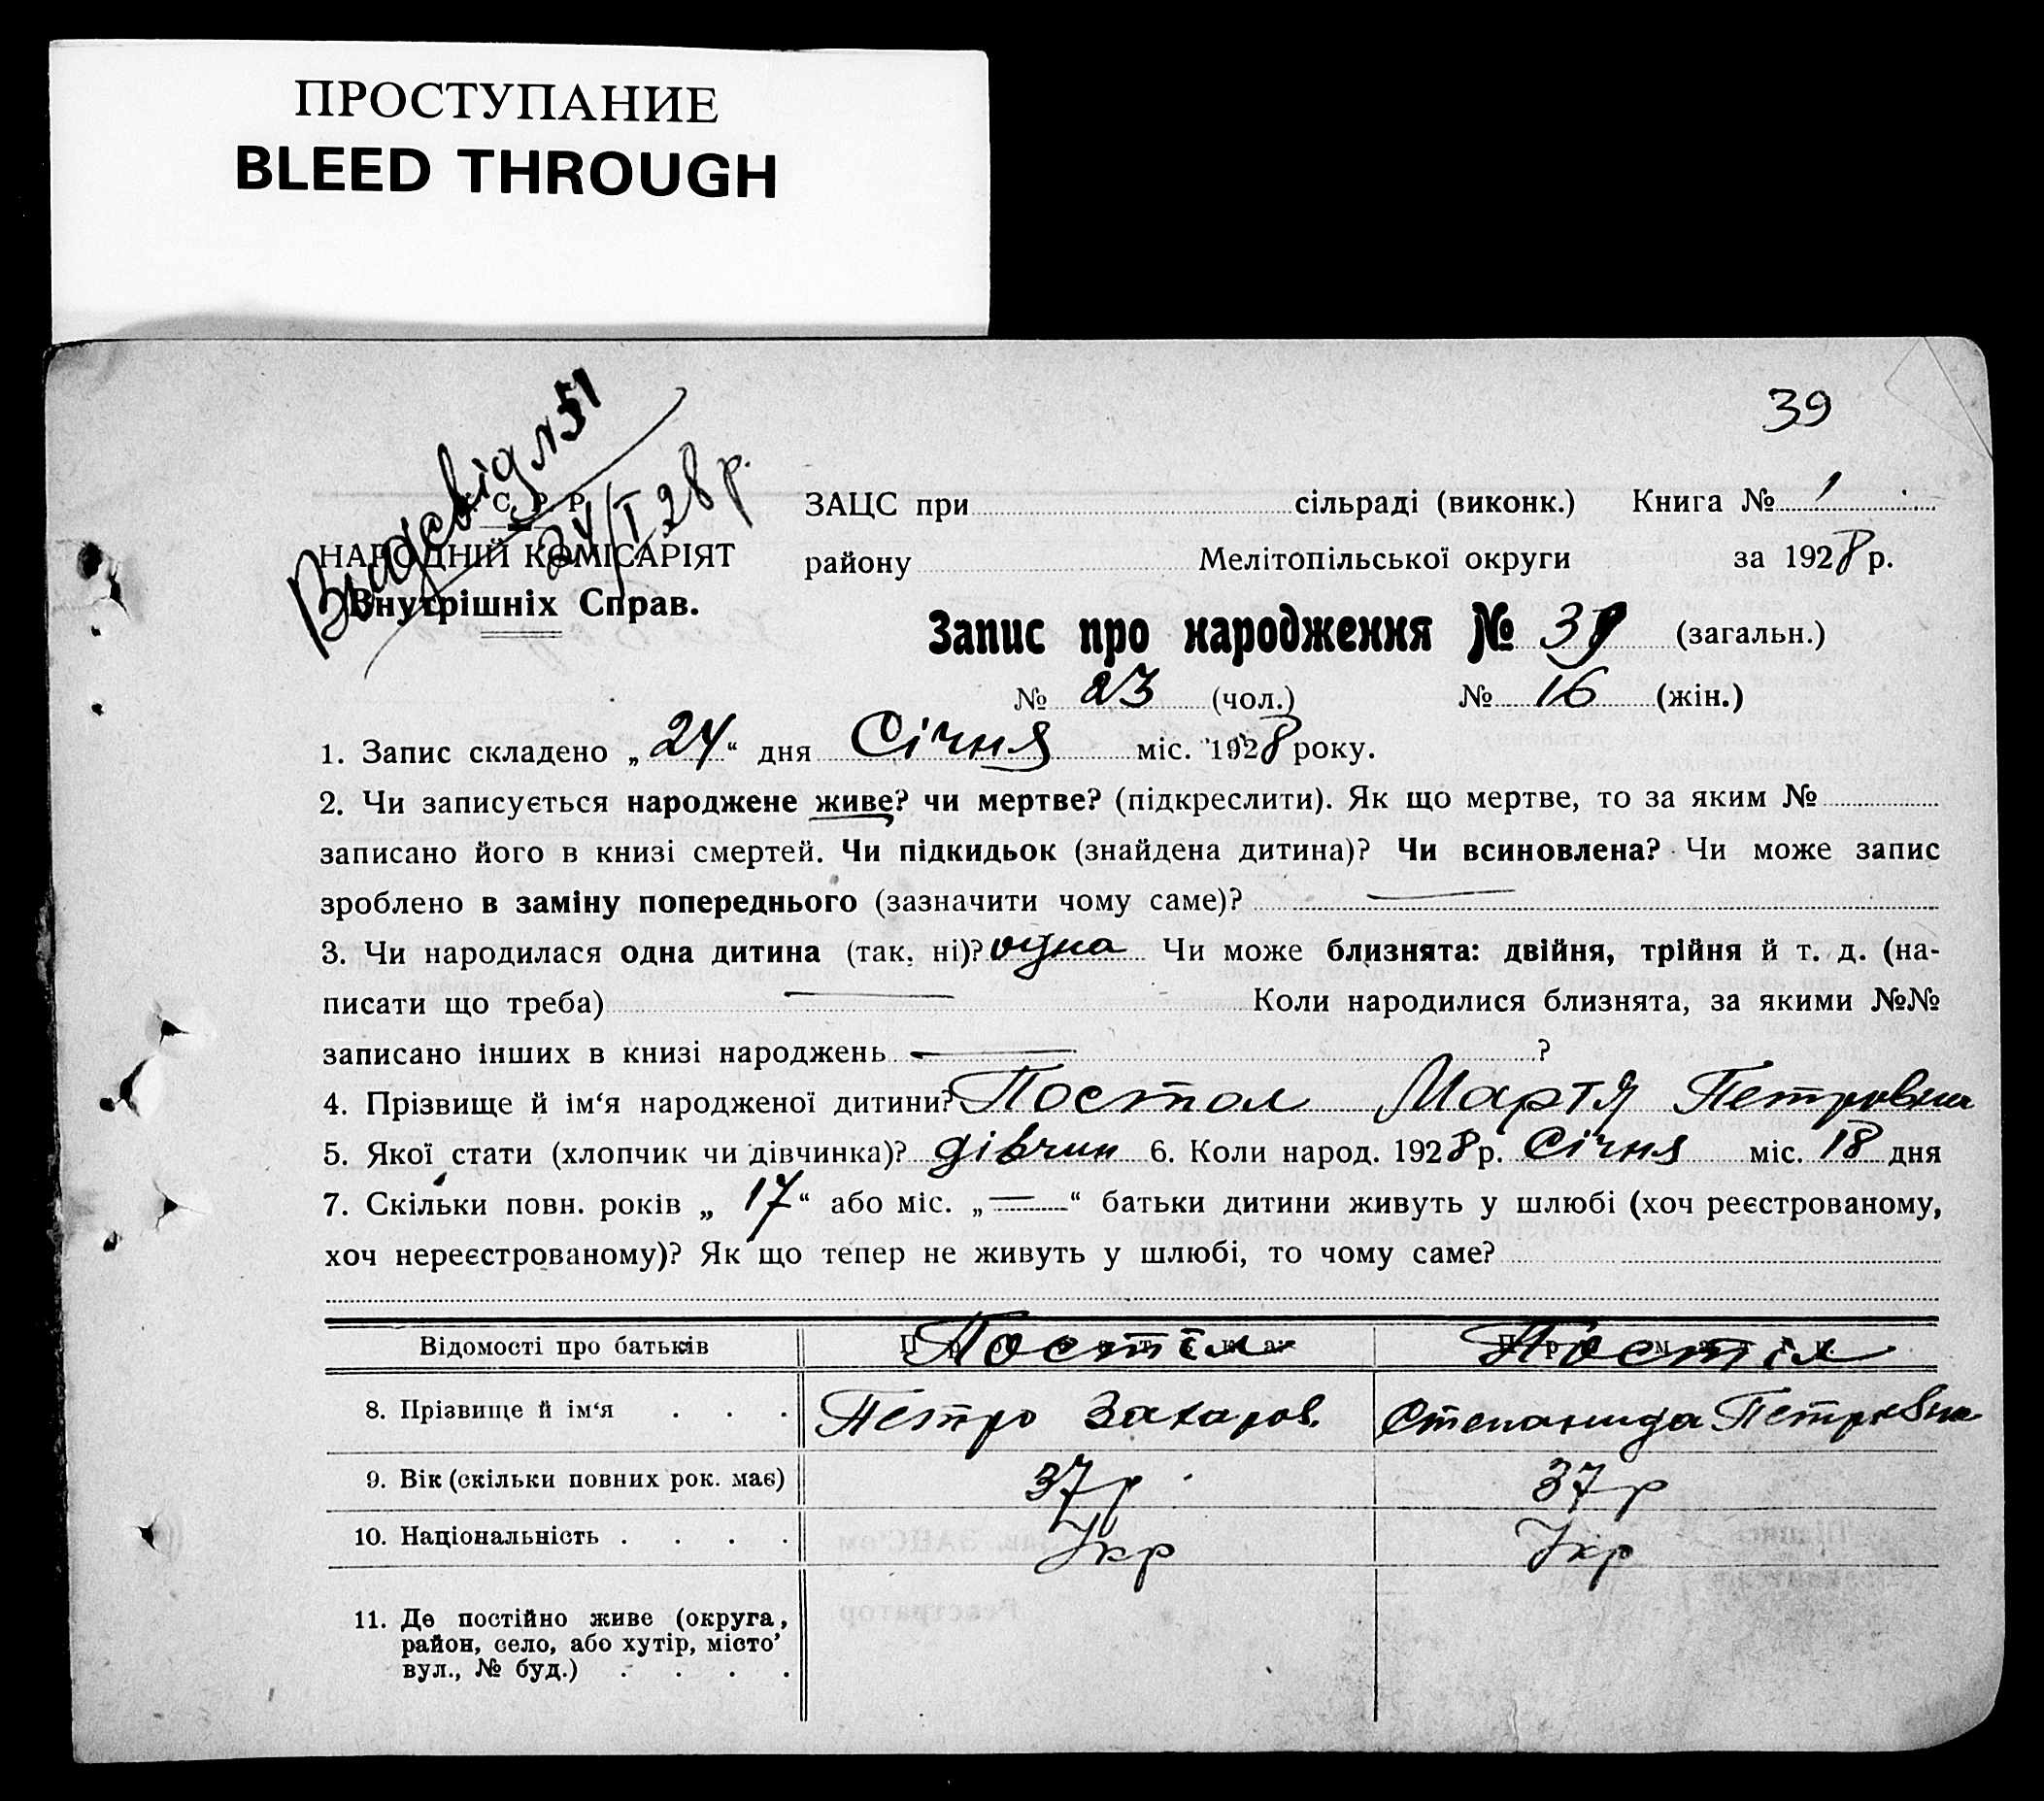 ПРОСТУПАНИЕ
BLEED THROUGH
39
Видєвід №51
24/I 28 р.
С. Р. Р.
НАРОДНІЙ КОМІСАРІЯТ
Внутрішніх Справ.
ЗАЦС при сільраді (виконк.) Книга № 1
району Мелітопільської округи за 1928 р.
Запис про народження № 39 (загальн.)
№ 23 (чол.) № 16 (жін.)
1. Запис складено „24“ дня Січня міс. 1928 року.
2. Чи записується народжене живе? чи мертве? (підкреслити). Як що мертве, то за яким №
записано його в книзі смертей. Чи підкидьок (знайдена дитина)? Чи всиновлена? Чи може запис
зроблено в заміну попереднього (зазначити чому саме)? —
3. Чи народилася одна дитина (так, ні)? одна Чи може близнята: двійня, трійня й т. д. (на-
писати що треба) — Коли народилися близнята, за якими №№
записано інших в книзі народжень — ?
4. Прізвище й ім‘я народженої дитини? Постол Мартя Петровна
5. Якої стати (хлопчик чи дівчинка)? дівчин 6. Коли народ. 1928 р. Січня міс. 18 дня
7. Скільки повн. років „17“ або міс. „—“ батьки дитини живуть у шлюбі (хоч реєстрованому,
хоч нереєстрованому)? Як що тепер не живуть у шлюбі, то чому саме?
Відомості про батьків Постіл Постіл
8. Прізвище й ім‘я . . . Петро Захаров. Степанида Петровна
9. Вік (скільки повних рок. має) 37 р. 37 р
10. Національність . . . . Укр Укр
11. Де постійно живе (округа,
район, село, або хутір, місто
вул., № буд.) . . . .